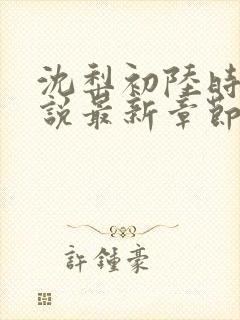 沈梨初陸時
說最新章節
許鍾豪